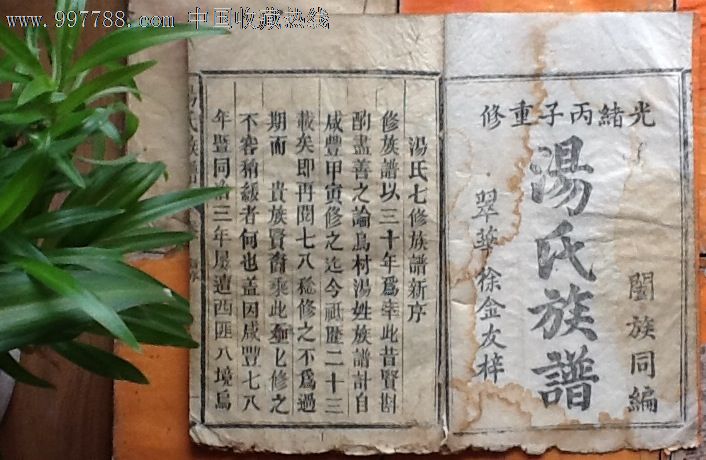 www.997788.com 中国收藏热线
光緒丙子重修
闔族同編
湯氏族譜
翠華徐金友梓
湯氏七修族譜新序
修族譜以三十年為率此昔賢斟
酌盡善之論爲村湯姓族譜計自
咸豐甲寅修之迄今祇歷二十三
載矣即再閱七八稔修之不爲過
期而 貴族賢裔乘此而七修之
不容稍緩者何也蓋因咸豐七八
年暨同治三年屡遭西匪入境焉